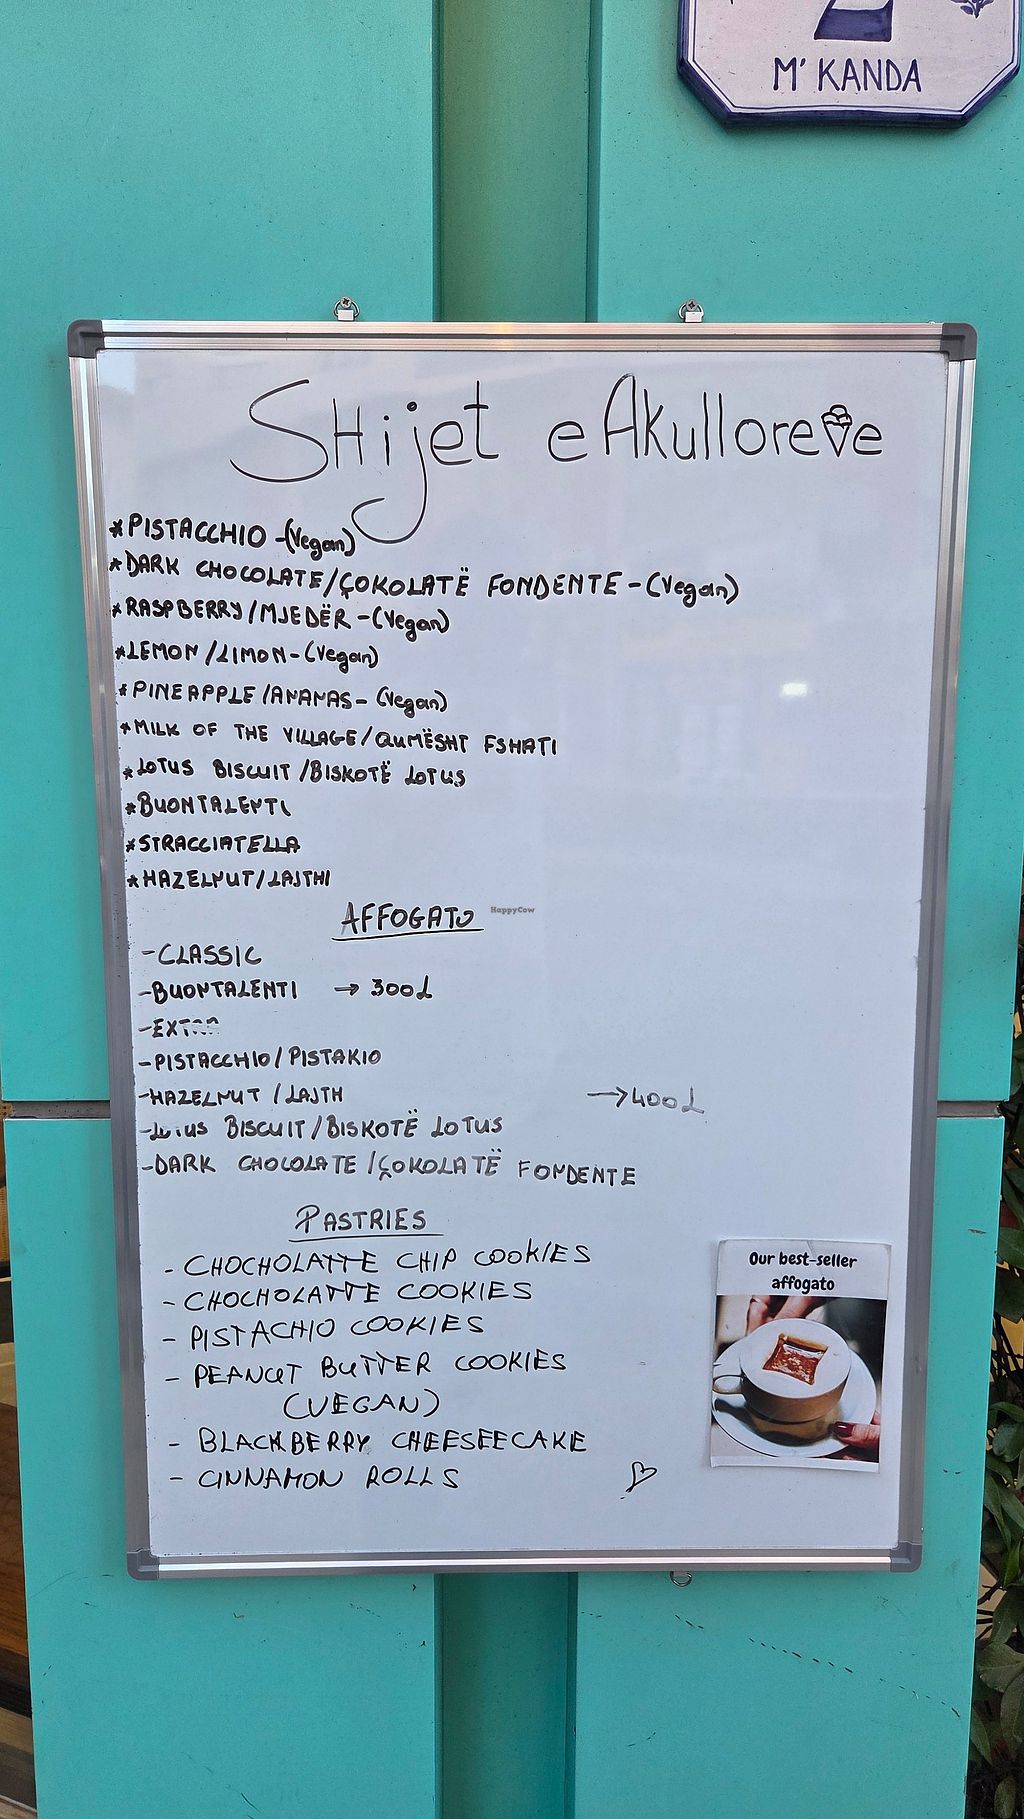 2
M' KANDA
SHijet e Akulloreve
*PISTACCHIO -(Vegan)
*DARK CHOCOLATE/ÇOKOLATË FONDENTE -(Vegan)
*RASPBERRY/MJEDËR -(Vegan)
*LEMON/LIMON-(Vegan)
*PINEAPPLE/ANANAS- (Vegan)
*MILK OF THE VILLAGE/QUMËSHT FSHATI
*LOTUS BISCUIT/BISKOTË LOTUS
*BUONTALENTI
*STRACCIATELLA
*HAZELNUT/LAJTHI
AFFOGATO
HappyCow
-CLASSIC
-BUONTALENTI → 300L
-EXTRA
-PISTACCHIO/PISTAKIO
-HAZELNUT/LAJTH → 400L
-LOTUS BISCUIT/BISKOTË LOTUS
-DARK CHOCOLATE/ÇOKOLATË FONDENTE
PASTRIES
- CHOCHOLATTE CHIP COOKIES
- CHOCHOLATTE COOKIES
- PISTACHIO COOKIES
- PEANUT BUTTER COOKIES
(VEGAN)
- BLACKBERRY CHEESEECAKE
- CINNAMON ROLLS
Our best-seller
affogato